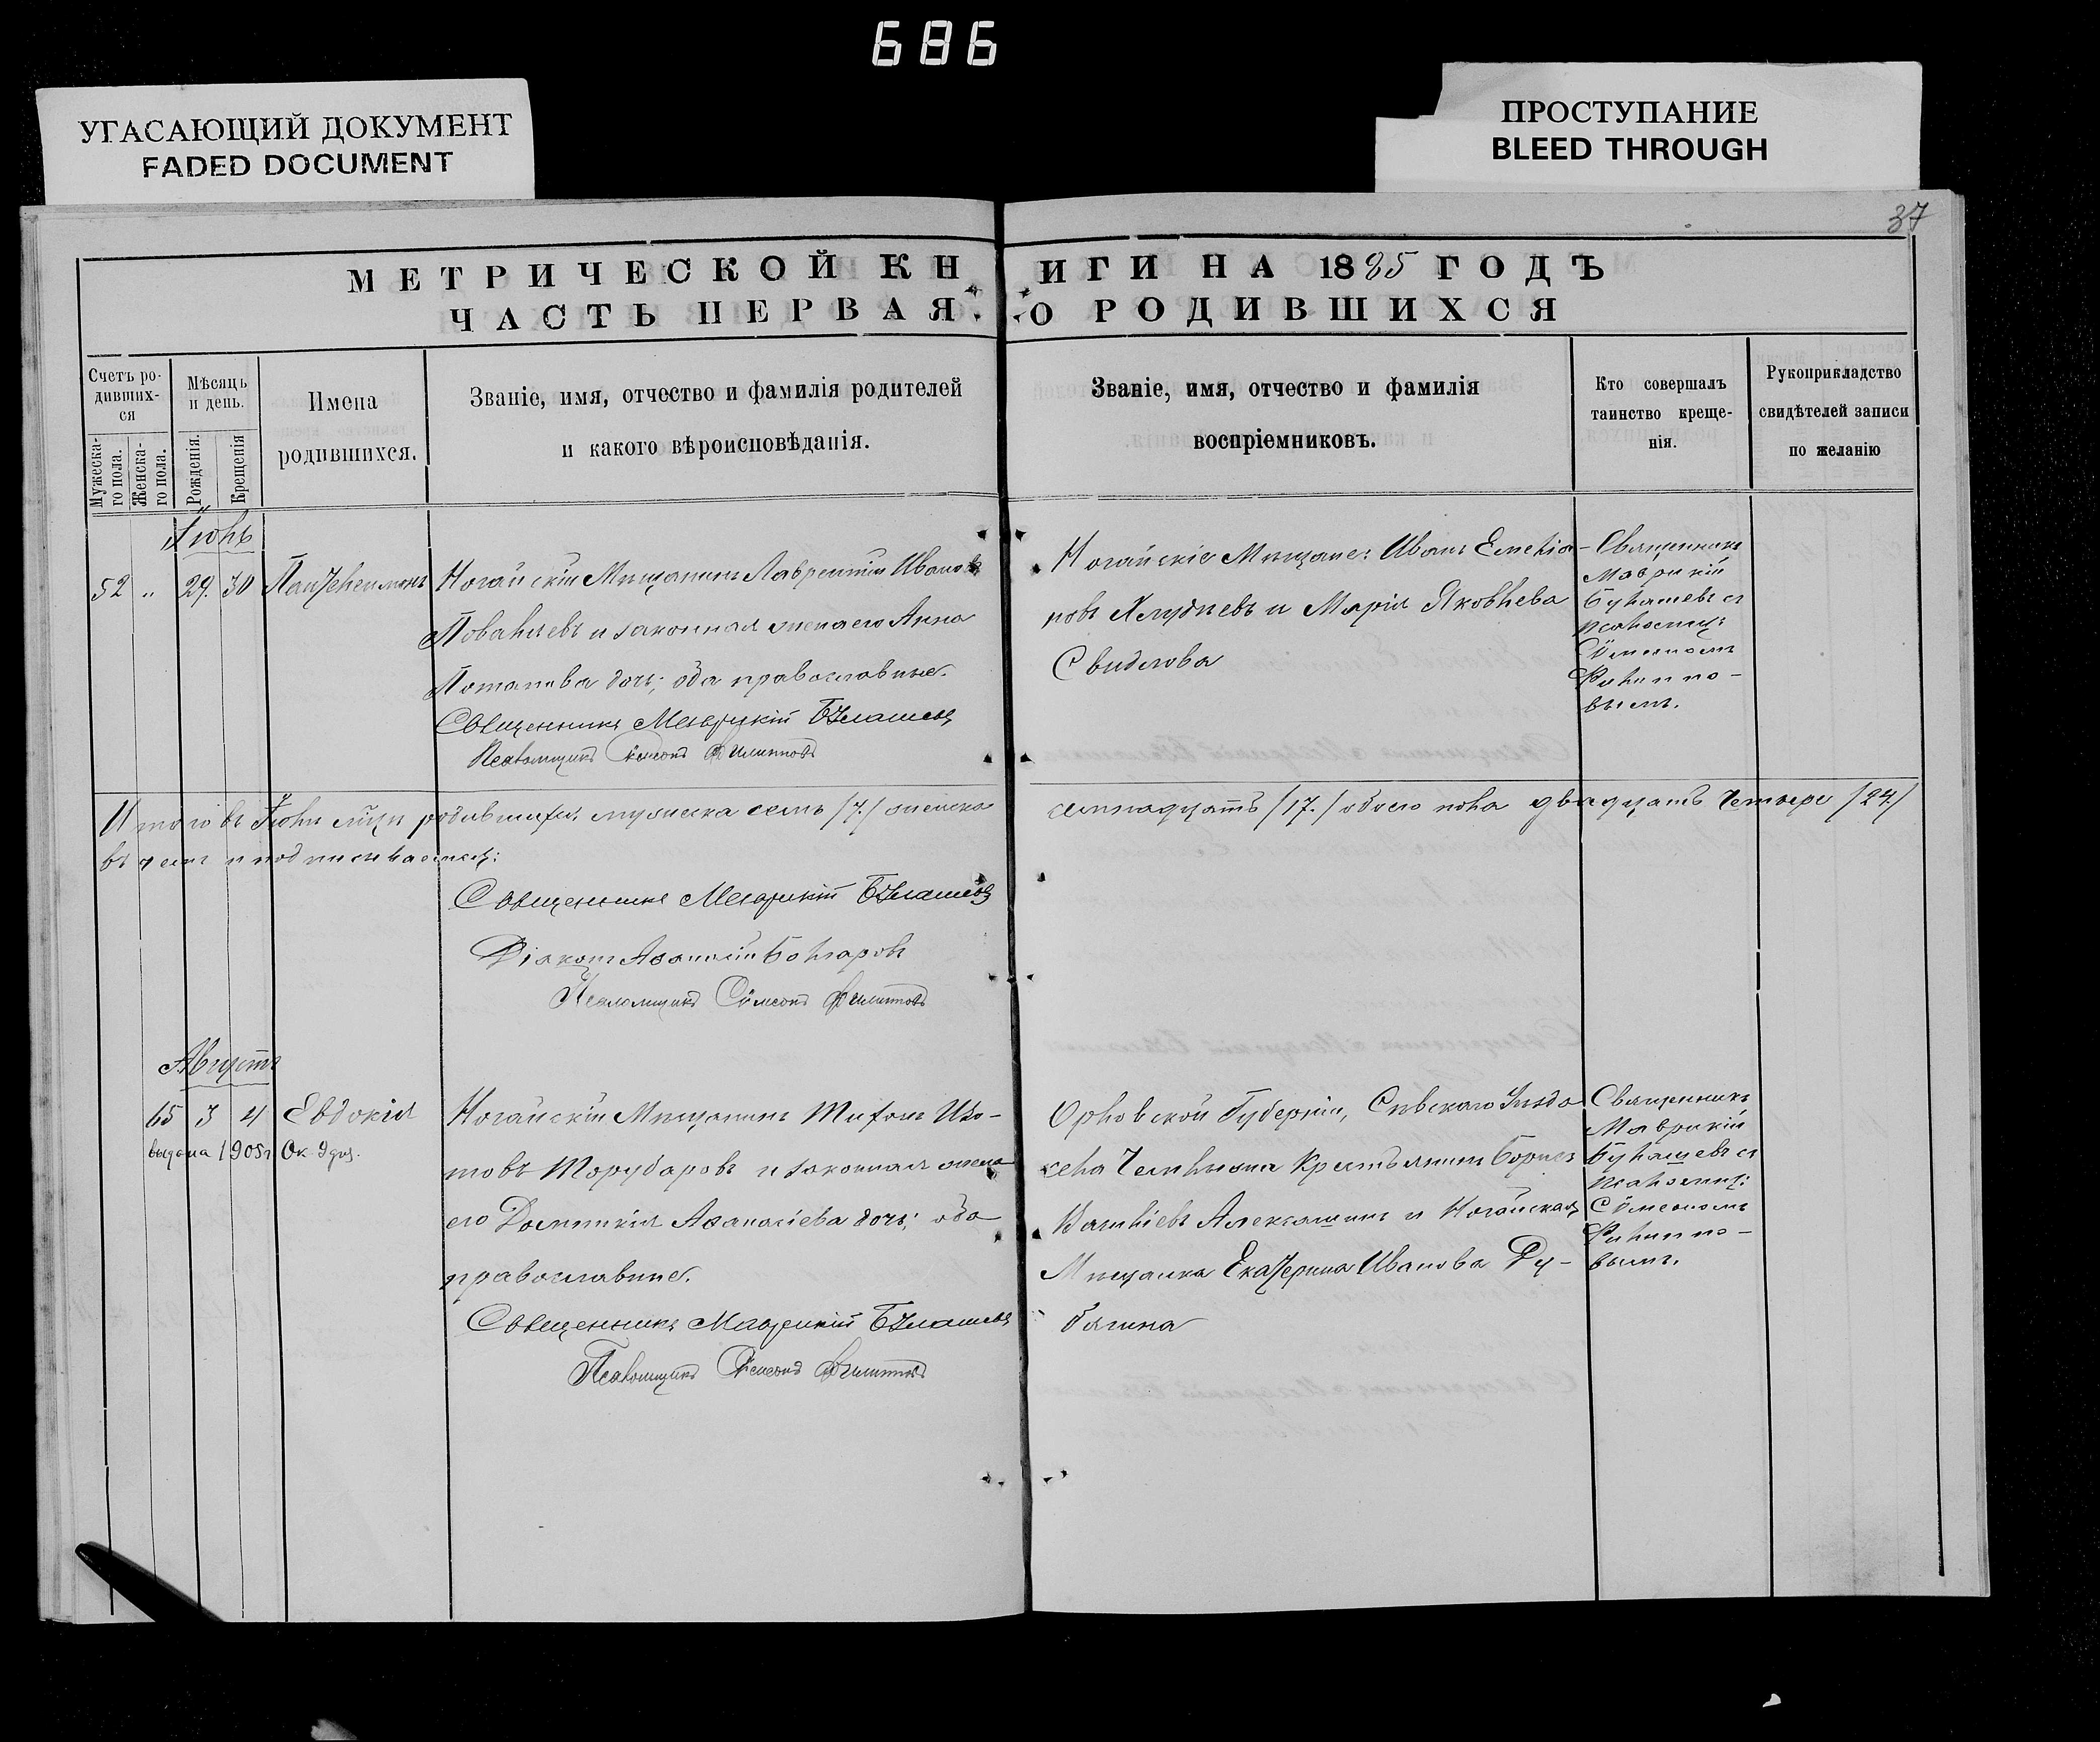 686
УГАСАЮЩИЙ ДОКУМЕНТ
FADED DOCUMENT
ПРОСТУПАНИЕ
BLEED THROUGH
37
МЕТРИЧЕСКОЙ КНИГИ НА 1885 ГОДЪ
ЧАСТЬ ПЕРВАЯ. О РОДИВШИХСЯ
Счетъ ро-
дивших-
ся
Мужеска-
го пола.
Женска-
го пола.
Мѣсяцъ
и день.
Рожденія.
Крещенія
Имена
родившихся.
Званіе, имя, отчество и фамилія родителей
и какого вѣроисповѣданія.
Званіе, имя, отчество и фамилія
воспріемниковъ.
Кто совершалъ
таинство креще-
нія.
Рукоприкладство
свидѣтелей записи
по желанію
Іюнь
52 " 29. 30 Пантелеимонъ
Ногайскій Мѣщанинъ Лаврентій Ивановъ
и законная жена его Анна
Потапова дочь; оба православные.
Священникъ Маврикій Булашевъ
Псаломщикъ Сѵмеонъ Филипповъ
Ногайскіе Мѣщане: Иванъ Емелья-
новъ и Марія Яковлева
Священникъ
Маврикій
Булашевъ съ
псаломщ:
Сѵмеономъ
Филиппо-
вымъ.
Итого въ Іюнѣ родившихся мужеска семь /7./ женска
семнадцать /17./ обоего пола двадцать четыре /24/
въ чемъ и подписываемся:
Священникъ Маврикій Булашевъ
Діаконъ Аѳанасій Болгаровъ
Псаломщикъ Сѵмеонъ Филипповъ
Августъ
65 3 4 Евдокія
выдана 1905г Ок. 9 дня.
Ногайскій Мѣщанинъ Тихонъ Изо-
товъ Торубаровъ и законная жена
его Домникія Аѳанасіева дочь; оба
православные.
Священникъ Маврикій Булашевъ
Псаломщикъ Сѵмеонъ Филипповъ
Орловской Губерніи, Сѣвскаго Уѣзда
села Крестьянинъ Борисъ
и Ногайская
Мѣщанка Екатерина Иванова Ду-
Священникъ
Маврикій
Булашевъ съ
псаломщ:
Сѵмеономъ
Филиппо-
вымъ.